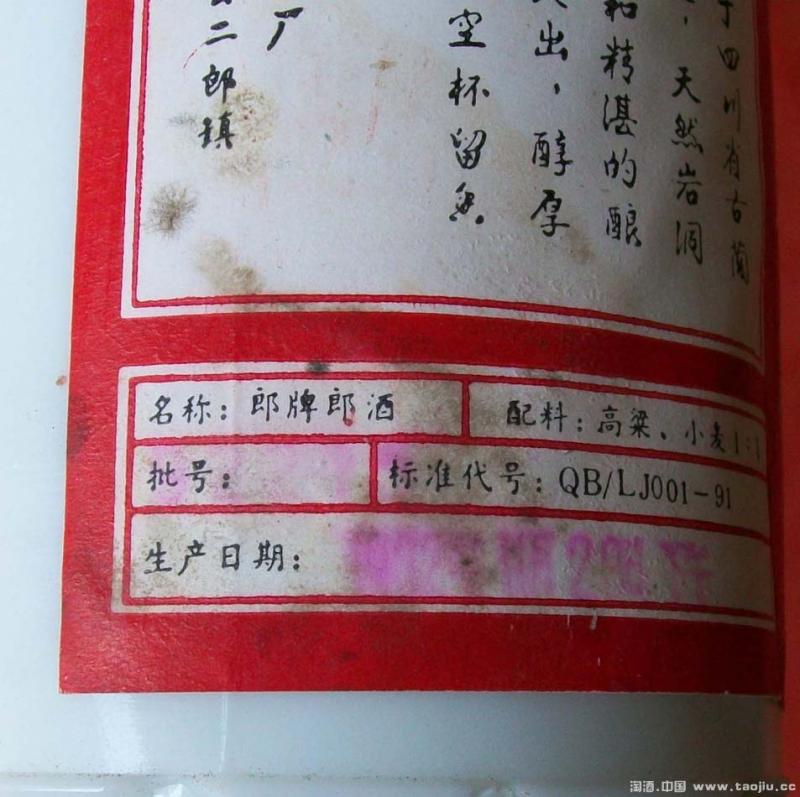 于四川省古蔺
，天然岩洞
和精湛的酿
出，醇厚
空杯留香
厂
二郎镇
名称：郎牌郎酒
配料：高粱、小麦1：1
批号：
标准代号：QB/LJ001-91
生产日期：
淘酒.中国 www.taojiu.cc